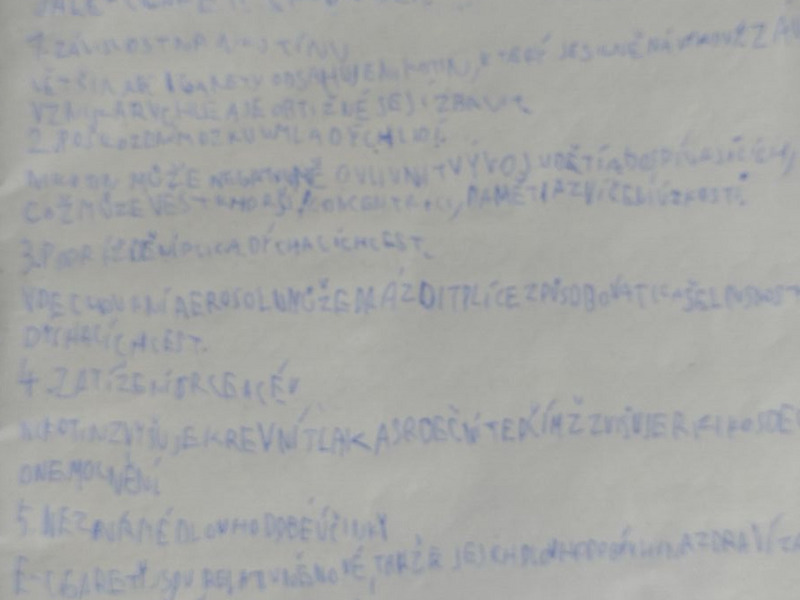 1. ZÁVISLOST NA NIKOTINU
VĚTŠINA E-CIGARETY OBSAHUJE NIKOTIN, KTERÝ JE SILNĚ NÁVYKOVÝ ZÁV
VZNIKÁ RYCHLE A JE OBTÍŽNÉ SE JÍ ZBAVIT.
2. POŠKOZENÍ MOZKU U MLADÝCH LIDÍ.
NIKOTIN MŮŽE NEGATIVNĚ OVLIVNIT VÝVOJ U DĚTÍ A DOSPÍVAJÍCÍCH,
COŽ MŮŽE VÉST K HORŠÍ KONCENTRACI, PAMĚTI A ZVÝŠENÍ ÚZKOSTI.
3. PODRÁŽDĚNÍ PLIC A DÝCHACÍCH CEST.
VDECHOVÁNÍ AEROSOLU MŮŽE DRÁŽDIT PLÍCE ZPŮSOBOVAT KAŠEL
DÝCHACÍCH CEST.
4. ZATÍŽENÍ SRDCE A CÉV
NIKOTIN ZVYŠUJE KREVNÍ TLAK A SRDEČNÍ TEP ČÍMŽ ZVYŠUJE RIZIKO
ONEMOCNĚNÍ
5. NEZNÁMÉ DLOUHODOBÉ ÚČINKY
E-CIGARETY JSOU RELATIVNĚ NOVÉ, TAKŽE JEJICH DLOUHODOBÝ NA ZDRAVÍ